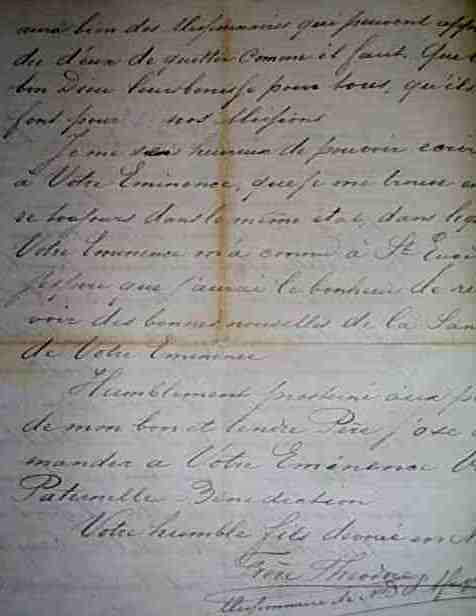 aura bien des Missionaires qui peuvent
d'eux de quitter comme il faut. Que
bon Dieu leur pour tous, qu'ils
font pour nos Missions
Je me suis heureux de pouvoir
à Votre Eminence, que je me trouve
toujours dans le même état, dans
Votre Eminence m'a connu à St
J'espère que j'aurai le bonheur de re
voir des bonnes nouvelles de la San
de Votre Eminence
Humblement prosterné aux p
de mon bon et tendre Père j'ose
mander a Votre Eminence
Paternelle Bénédiction
Votre humble fils dévoué en
Frère Théodore
Missionaire de